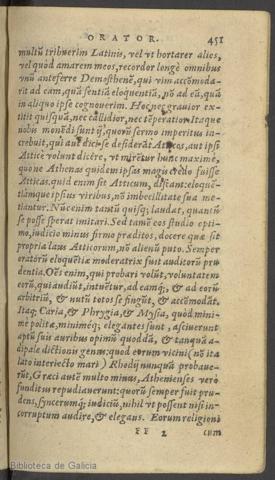 ORATOR. 451
multũ tribuerim Latinis, vel vt hortarer alios,
vel quòd amarem meos, recordor longè omnibus
vnũ anteferre Demosthenẽ, qui vim accõmoda-
rit ad eam, quã sentiã eloquentiã, nõ ad eã, quã
in aliquo ipse cognouerim. Hoc nec grauior ex-
titit quisquã, nec callidior, nec tẽperatior. Itaque
nobis monẽdi sunt ij, quorũ sermo imperitus in-
crebuit, qui aut dici se desiderãt Atticos, aut ipsi
Atticè volunt dicere, vt mirẽtur hunc maximè,
quo ne Athenas quidem ipsas magis credo fuisse
Atticas. quid enim sit Atticum, discant: eloquẽ-
tiamque ipsius viribus, nõ imbecillitate sua me-
tiantur. Nũc enim tantũ quisq; laudat, quantũ
se posse sperat imitari. Sed tamẽ eos studio opti-
mo, iudicio minus firmo præditos, docere quæ sit
propria laus Atticorum, nõ alienũ puto. Semper
oratorũ eloquẽtiæ moderatrix fuit auditorũ pru-
dentia. Oẽs enim, qui probari volũt, voluntatem
eorũ, qui audiũt, intuẽtur, ad eamq́;, & ad eorũ
arbitriũ, & nutũ totos se fingũt, & accõmodãt.
Itaq; Caria, & Phrygia, & Mysia, quòd mini-
mè politæ, minimèq́; elegantes sunt, asciuerunt
aptũ suis auribus opimũ quoddã, & tanquã a-
dipale dictionis genus: quod eorum vicini (nõ ita
lato interiecto mari) Rhodij nunquã probaue-
rũt, Græci autẽ multo minus, Athenienses verò
funditus repudiauerunt: quorũ semper fuit pru-
dens, syncerumq́; iudiciũ, nihil vt possent nisi in-
corruptum audire, & elegans. Eorum religioni
FF 2 cùm
Biblioteca de Galicia